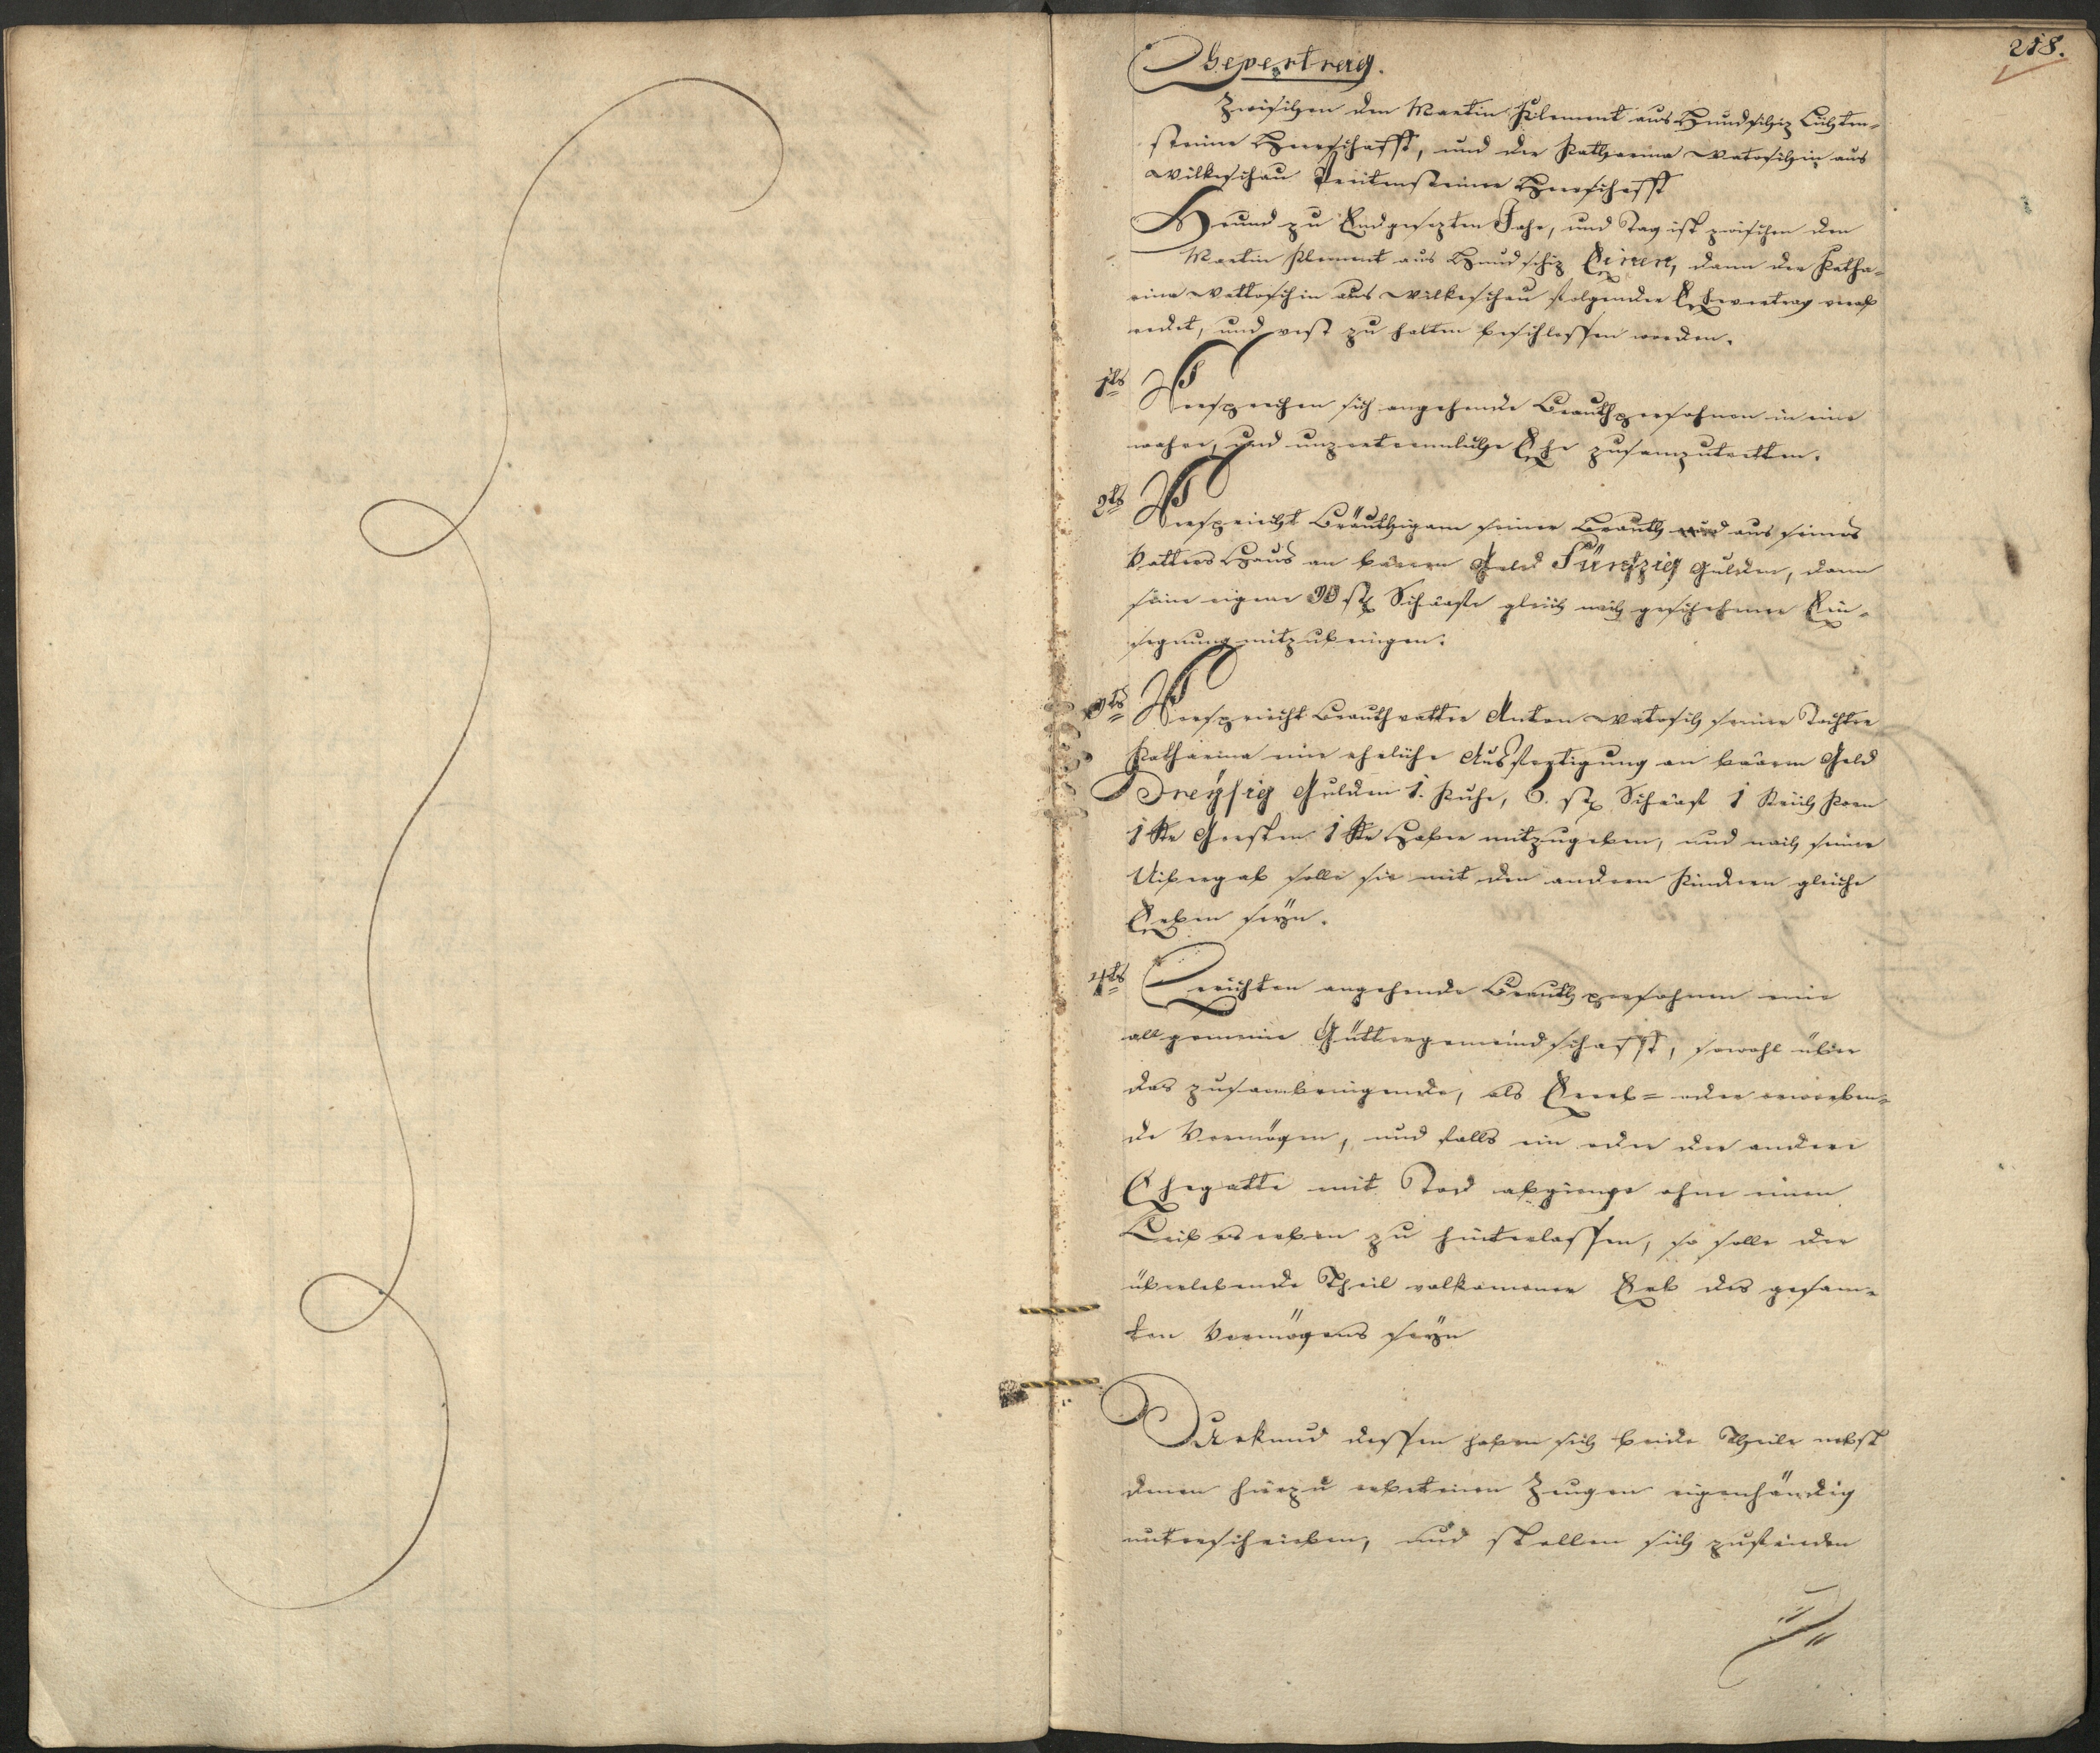 218.
Ehevertrag.
Zwischen den Martin Klement aus Hundschitz Lichten-
steiner Herrschafft, und der Katharina Watoschin aus
Wilkeschau Perntensteiner Herrschafft
Heund zu Endgesezten Jahr, und Tag ist zwischen den
Martin Klement aus Hundschiz Einen, dann der Katha-
rina Wattoschin aus Wilkeschau folgender Ehevertrag verab
redet, und vest zu halten beschlossen worden.
1tens Versprechen sich angehende Brauthpersohnen in eine
wahre, und unzertrennliche Ehe zusamzutretten.
2tens Verspricht Bräuthigam seiner Brauth aus seines
Vatters Haus an baaren Geld Fünfzig Gulden, dann
seine eigene 30 st. Schaafe gleich nach geschehener Ein-
segnung mitzubringen.
3tens Verspricht Brauthvatter Anton Watosch seiner Tochter
Katharina eine eheliche Ausfertigung an baaren Geld
Dreyssig Gulden 1. Kuhe, 6. st. Schaaf 1 Korn
1 Gersten 1 Haber mitzugeben, und nach seiner
Uibergab solle sie mit den andern Kindern gleiche
Erben seyn.
4tens Errichten angehende Brauthpersohnen eine
allgemeine Güttergemeindschafft, sowohl über
das zusambringende, als Ererb- oder erwerben-
de Vermögen, und falls ein oder der andere
Ehegatte mit Tod abgienge ohne einen
Leibeserben zu hinterlassen, so solle der
überlebende Theil volkomener Erb des gesam-
ten Vermögens seyn
Zu Urkund dessen haben sich beide Theile nebst
denen hierzu erbettenen Zeugen eigenhändig
unterschrieben, und stellen sich zufrieden